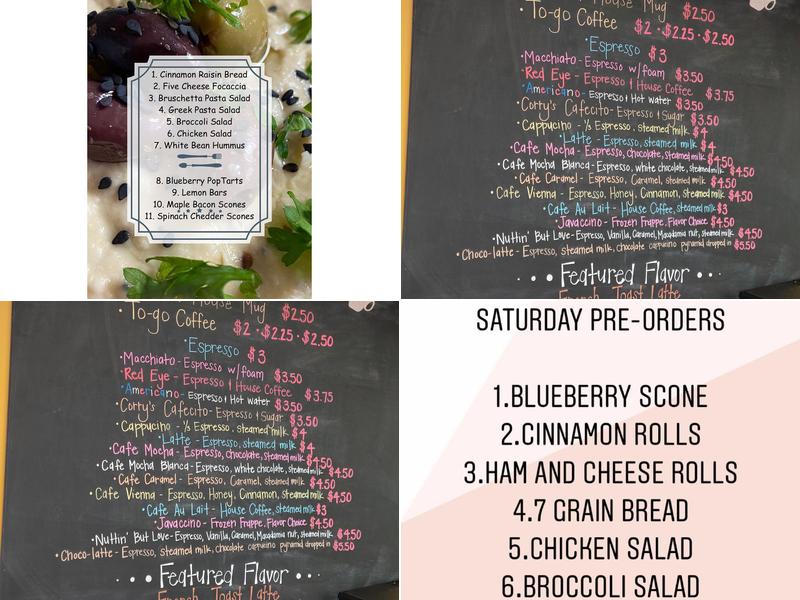 1. Cinnamon Raisin Bread
2. Five Cheese Focaccia
3. Bruschetta Pasta Salad
4. Greek Pasta Salad
5. Broccoli Salad
6. Chicken Salad
7. White Bean Hummus
8. Blueberry PopTarts
9. Lemon Bars
10. Maple Bacon Scones
11. Spinach Chedder Scones
House Mug $2.50
• To-go Coffee $2 • $2.25 • $2.50
• Espresso $3
• Macchiato - Espresso w/ foam $3.50
• Red Eye - Espresso & House Coffee $3.75
• Americano - Espresso & Hot water $3.50
• Corty's Cafecito - Espresso & Sugar $3.50
• Cappuccino - ⅓ Espresso, steamed milk $4
• Latte - Espresso, steamed milk $4
• Cafe Mocha - Espresso, chocolate, steamed milk $4.50
• Cafe Mocha Blanca - Espresso, white chocolate, steamed milk $4.50
• Cafe Caramel - Espresso, Caramel, steamed milk $4.50
• Cafe Vienna - Espresso, Honey, Cinnamon, steamed milk $4.50
• Cafe Au Lait - House Coffee, steamed milk $3
• Javaccino - Frozen Frappe, Flavor Choice $4.50
• Nuttin' But Love - Espresso, Vanilla, Caramel, Macadamia nut, steamed milk $4.50
• Choco-latte - Espresso, steamed milk, chocolate cappuccino pyramid dropped in $5.50
• • • Featured Flavor • • •
French Toast Latte
House Mug $2.50
To-go Coffee $2 • $2.25 • $2.50
• Espresso $3
• Macchiato - Espresso w/ foam $3.50
• Red Eye - Espresso & House Coffee $3.75
• Americano - Espresso & Hot water $3.50
• Corty's Cafecito - Espresso & Sugar $3.50
• Cappuccino - ⅓ Espresso, steamed milk $4
• Latte - Espresso, steamed milk $4
• Cafe Mocha - Espresso, chocolate, steamed milk $4.50
• Cafe Mocha Blanca - Espresso, white chocolate, steamed milk $4.50
• Cafe Caramel - Espresso, Caramel, steamed milk $4.50
• Cafe Vienna - Espresso, Honey, Cinnamon, steamed milk $4.50
• Cafe Au Lait - House Coffee, steamed milk $3
• Javaccino - Frozen Frappe, Flavor Choice $4.50
• Nuttin' But Love - Espresso, Vanilla, Caramel, Macadamia nut, steamed milk $4.50
• Choco-latte - Espresso, steamed milk, chocolate cappuccino pyramid dropped in $5.50
• • • Featured Flavor • • •
French Toast Latte
SATURDAY PRE-ORDERS
1.BLUEBERRY SCONE
2.CINNAMON ROLLS
3.HAM AND CHEESE ROLLS
4.7 GRAIN BREAD
5.CHICKEN SALAD
6.BROCCOLI SALAD